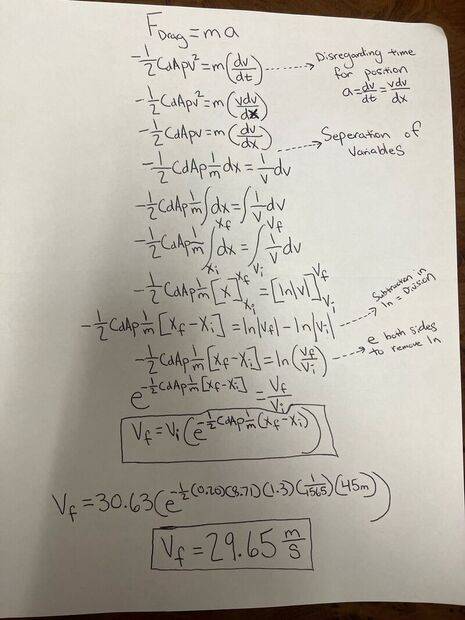 F_Drag = ma
-1/2 CdAρv² = m(dv/dt)
Disregarding time
for position
a = dv/dt = vdv/dx
-1/2 CdAρv² = m(vdv/dx)
-1/2 CdAρv = m(dv/dx)
Seperation of
Variables
-1/2 CdAρ 1/m dx = 1/v dv
-1/2 CdAρ 1/m ∫dx = ∫1/v dv
-1/2 CdAρ 1/m ∫_{xi}^{xf} dx = ∫_{vi}^{vf} 1/v dv
-1/2 CdAρ 1/m [x]_{xi}^{xf} = [ln|v|]_{vi}^{vf}
Subtraction in
ln = Division
-1/2 CdAρ 1/m [xf-xi] = ln|vf| - ln|vi|
-1/2 CdAρ 1/m [xf-xi] = ln(vf/vi)
e both sides
to remove ln
e^{-1/2 CdAρ 1/m [xf-xi]} = vf/vi
Vf = Vi(e^{-1/2 CdAρ 1/m (xf-xi)})
Vf = 30.63(e^{-1/2 (0.20)(8.71)(1.3)(1/1565)(45m)})
Vf = 29.65 m/s